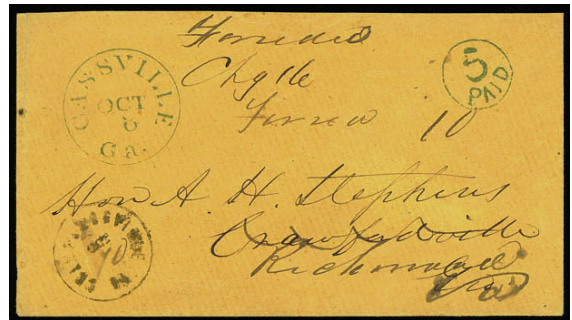 Forward
Chg
CASSVILLE
OCT
8
Ga.
5
PAID
10
Hon A. H. Stephens
Crawfordville
Richmond
Va